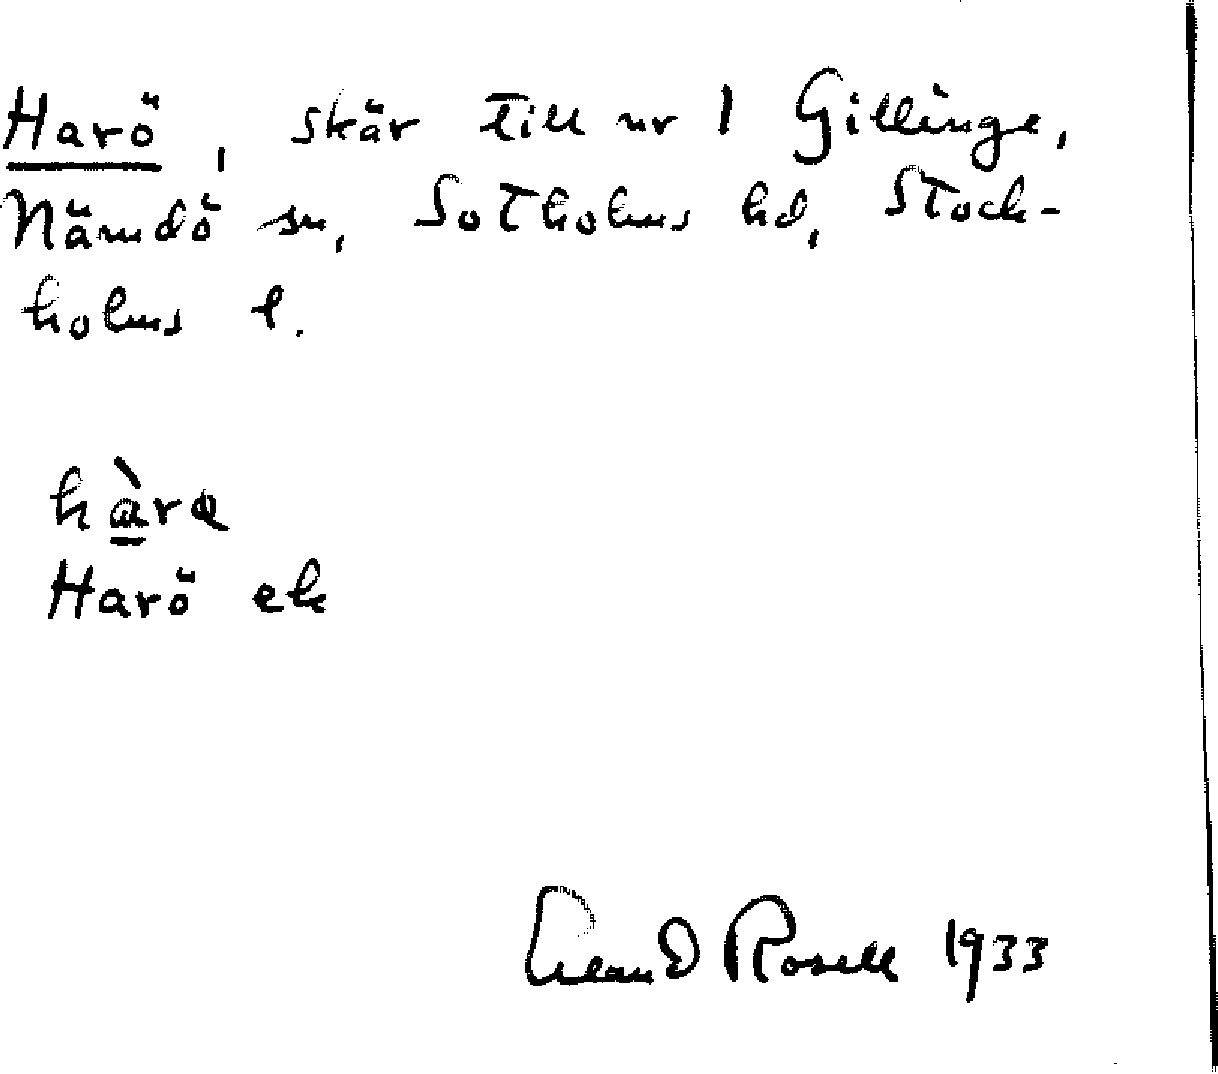 Harö, skär till nr 1 Gillinge,
Nämdö sn, Sotholms hd, Stock-
holms l.
hàra
Harö ek
Erland Rosell 1933